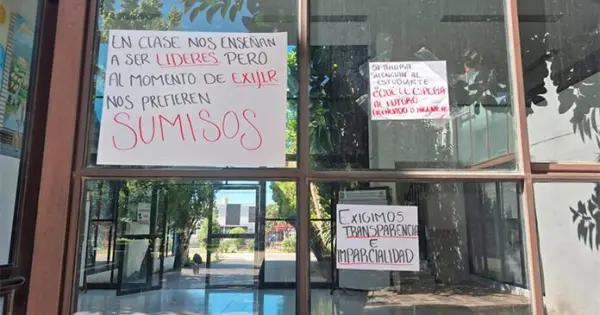 EN CLASE NOS ENSEÑAN
A SER LIDERES, PERO
AL MOMENTO DE EXIJIR
NOS PREFIEREN
SUMISOS
SILENCIAR AL
ESTUDIANTE
¿QUÉ LE ESPERA
AL FUTURO
EXIGIMOS
TRANSPARENCIA
E
IMPARCIALIDAD